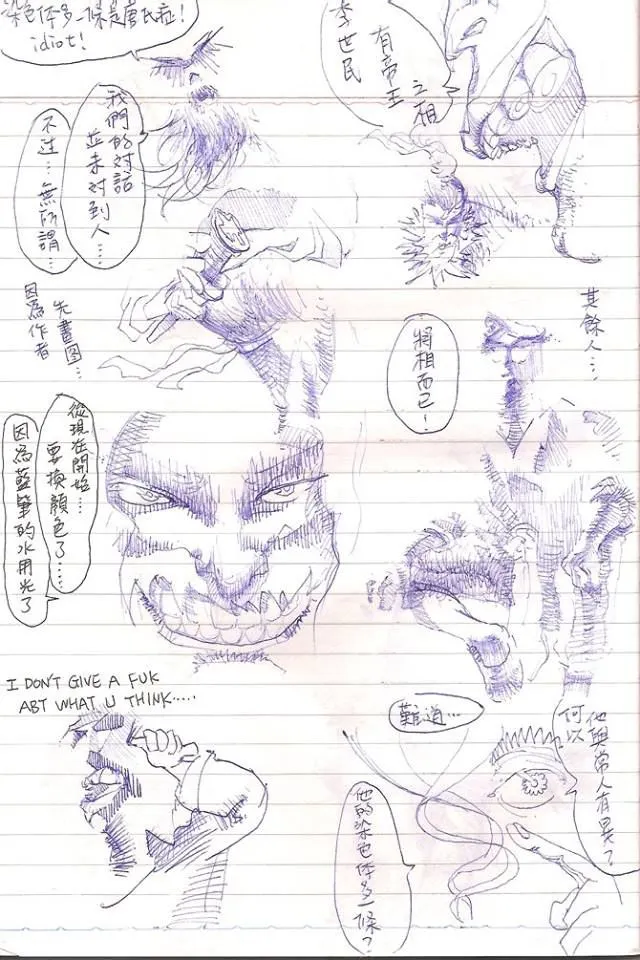 李世民
有帝王
之相
其餘人...
將相而已!
何以
他與常人有異?
難道...
他的染色体多一條?
染色体多一條是唐氏症!
idiot!
我們的對話
並未對到人.....
不过...無所謂...
因為作者
先畫图...
從現在開始....
要換顏色了.....
因為藍筆的水用光了
I DON'T GIVE A FUK
ABT WHAT U THINK.....